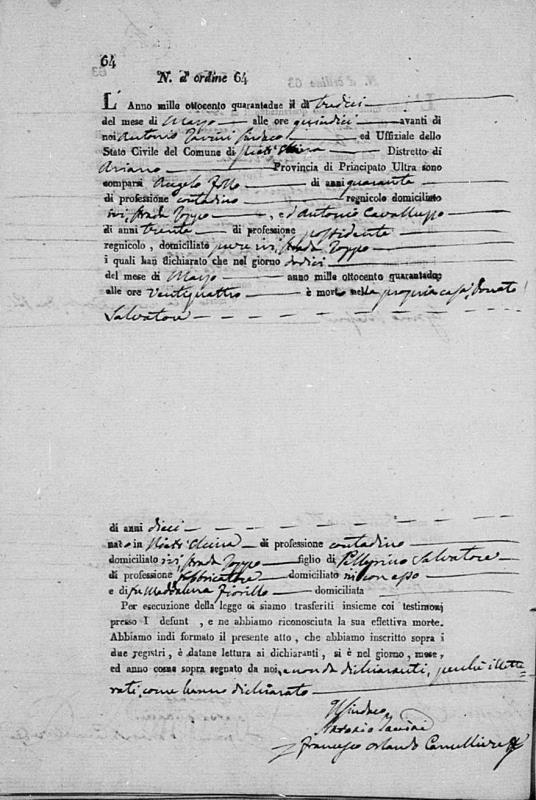 64
N. d'ordine 64
L' Anno mille ottocento quarantadue il dì tredici
del mese di Marzo alle ore quindici avanti di
noi Antonio Sindaco ed Uffiziale dello
Stato Civile del Comune di Distretto di
Ariano Provincia di Principato Ultra sono
comparsi Angelo di anni quaranta
di professione contadino regnicolo domiciliato
ivi, strada Toppo, e d'Antonio Cavalluzzo
di anni trenta di professione possidente
regnicolo, domiciliato pure ivi, strada Toppo
i quali han dichiarato che nel giorno dodici
del mese di Marzo anno mille ottocento quarantadue
alle ore ventiquattro è morto nella propria casa, Donato
Salvatore
di anni dieci
nato in di professione contadino
domiciliato ivi, strada Toppo figlio di Pellegrino Salvatore
di professione fabbricatore domiciliato ivi con esso
e di fu Maddalena Fiorillo domiciliata
Per esecuzione della legge ci siamo trasferiti insieme coi testimonj
presso I defunt , e ne abbiamo riconosciuta la sua effettiva morte.
Abbiamo indi formato il presente atto, che abbiamo inscritto sopra i
due registri, è datane lettura ai dichiaranti, si è nel giorno, mese,
ed anno come sopra segnato da noi, e non da dichiaranti, perchè illette-
rati, come hanno dichiarato
Il Sindaco
Antonio
Francesco Orlando Cancelliere